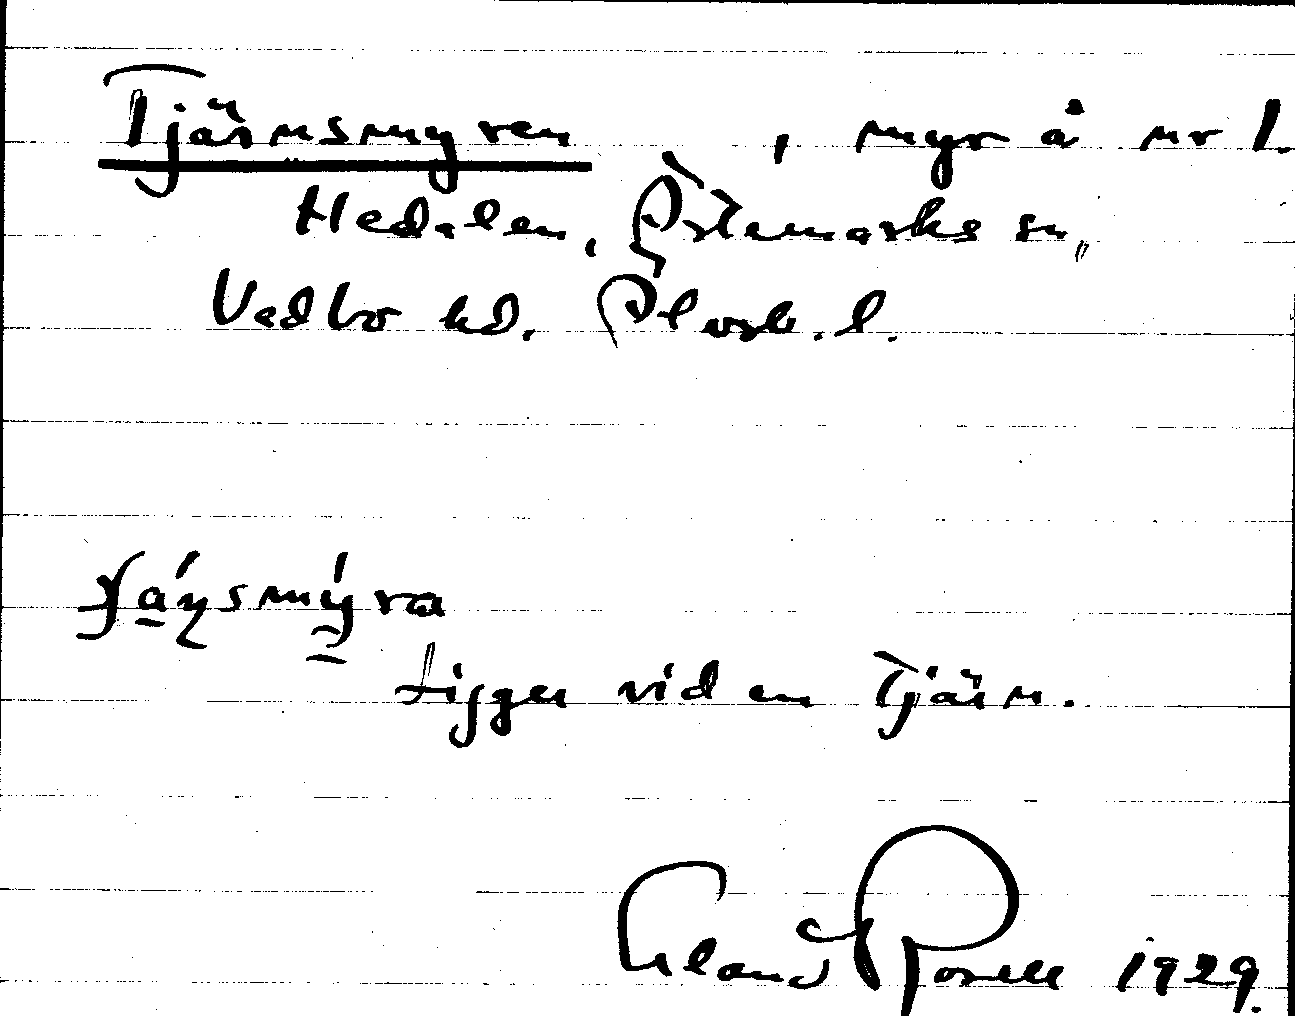 Tjärnsmyren, myr å nr 1.
Hedalen, Ödemarks sn,
Vedbo hd. Älvsb. l.
Ligger vid en Tjärn.
Erland Rosell 1929.